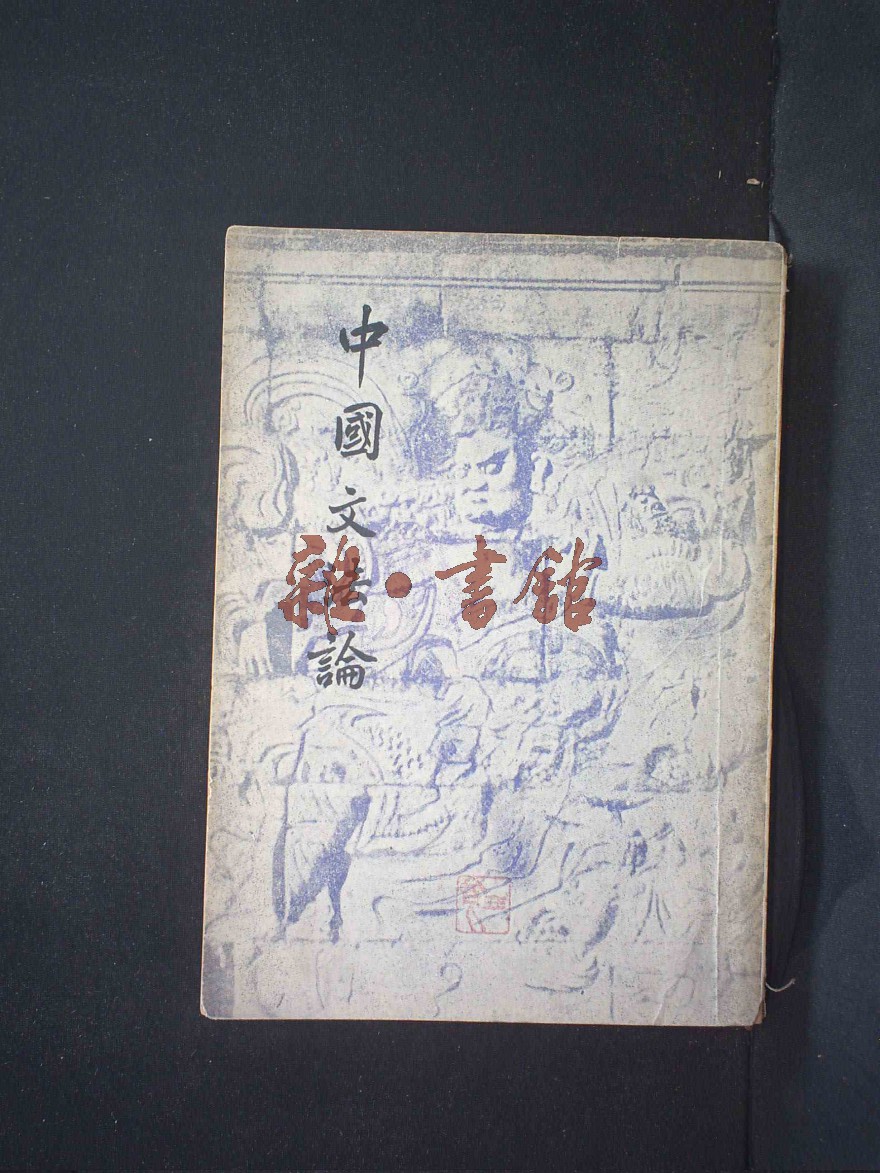 中國文法論
雜·書館